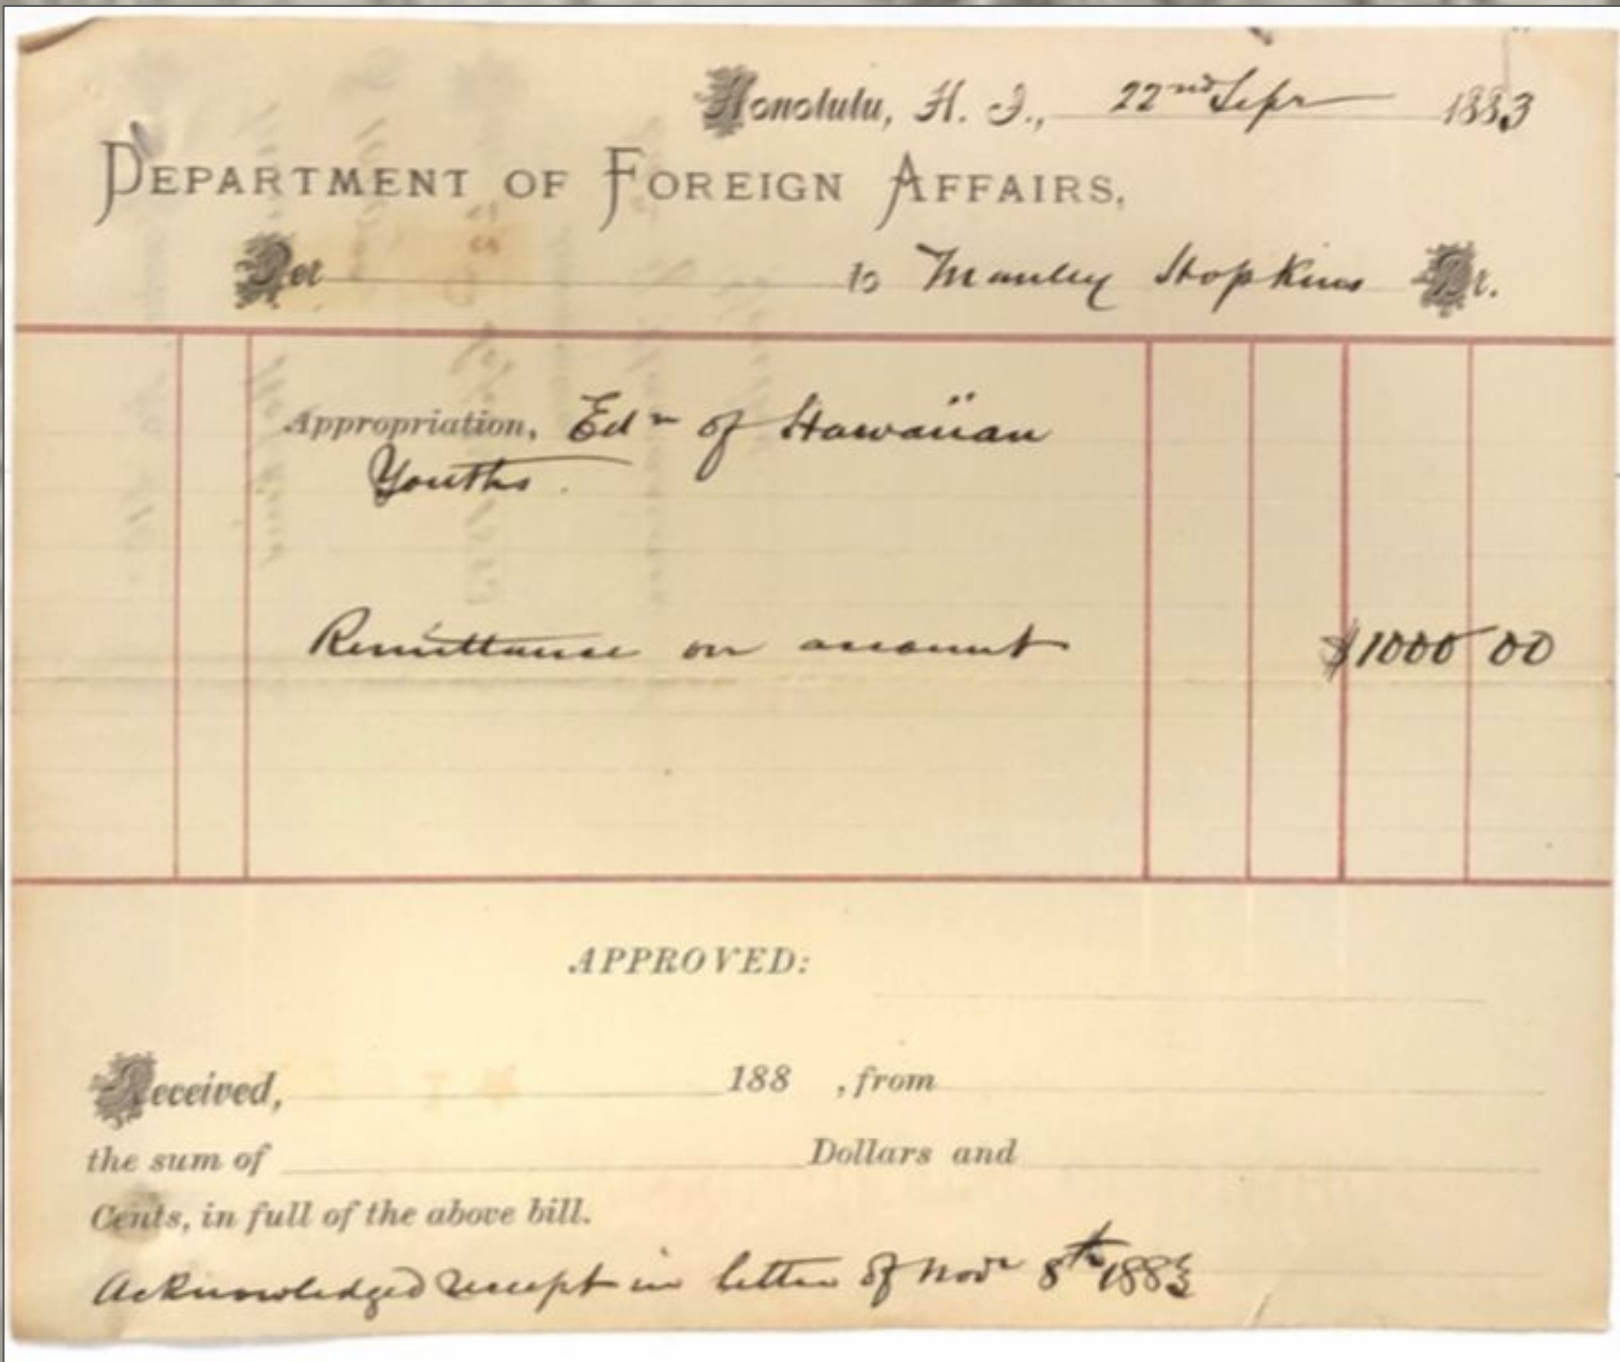 Honolulu, H. I., 22nd Sepr 1883
DEPARTMENT OF FOREIGN AFFAIRS,
Per to Manley Hopkins Dr.
Appropriation, Edn of Hawaiian
Youths.
Remittance on account $1000 00
APPROVED:
Received, 188 , from
the sum of Dollars and
Cents, in full of the above bill.
Acknowledged receipt in letter of Novr 8th 1883